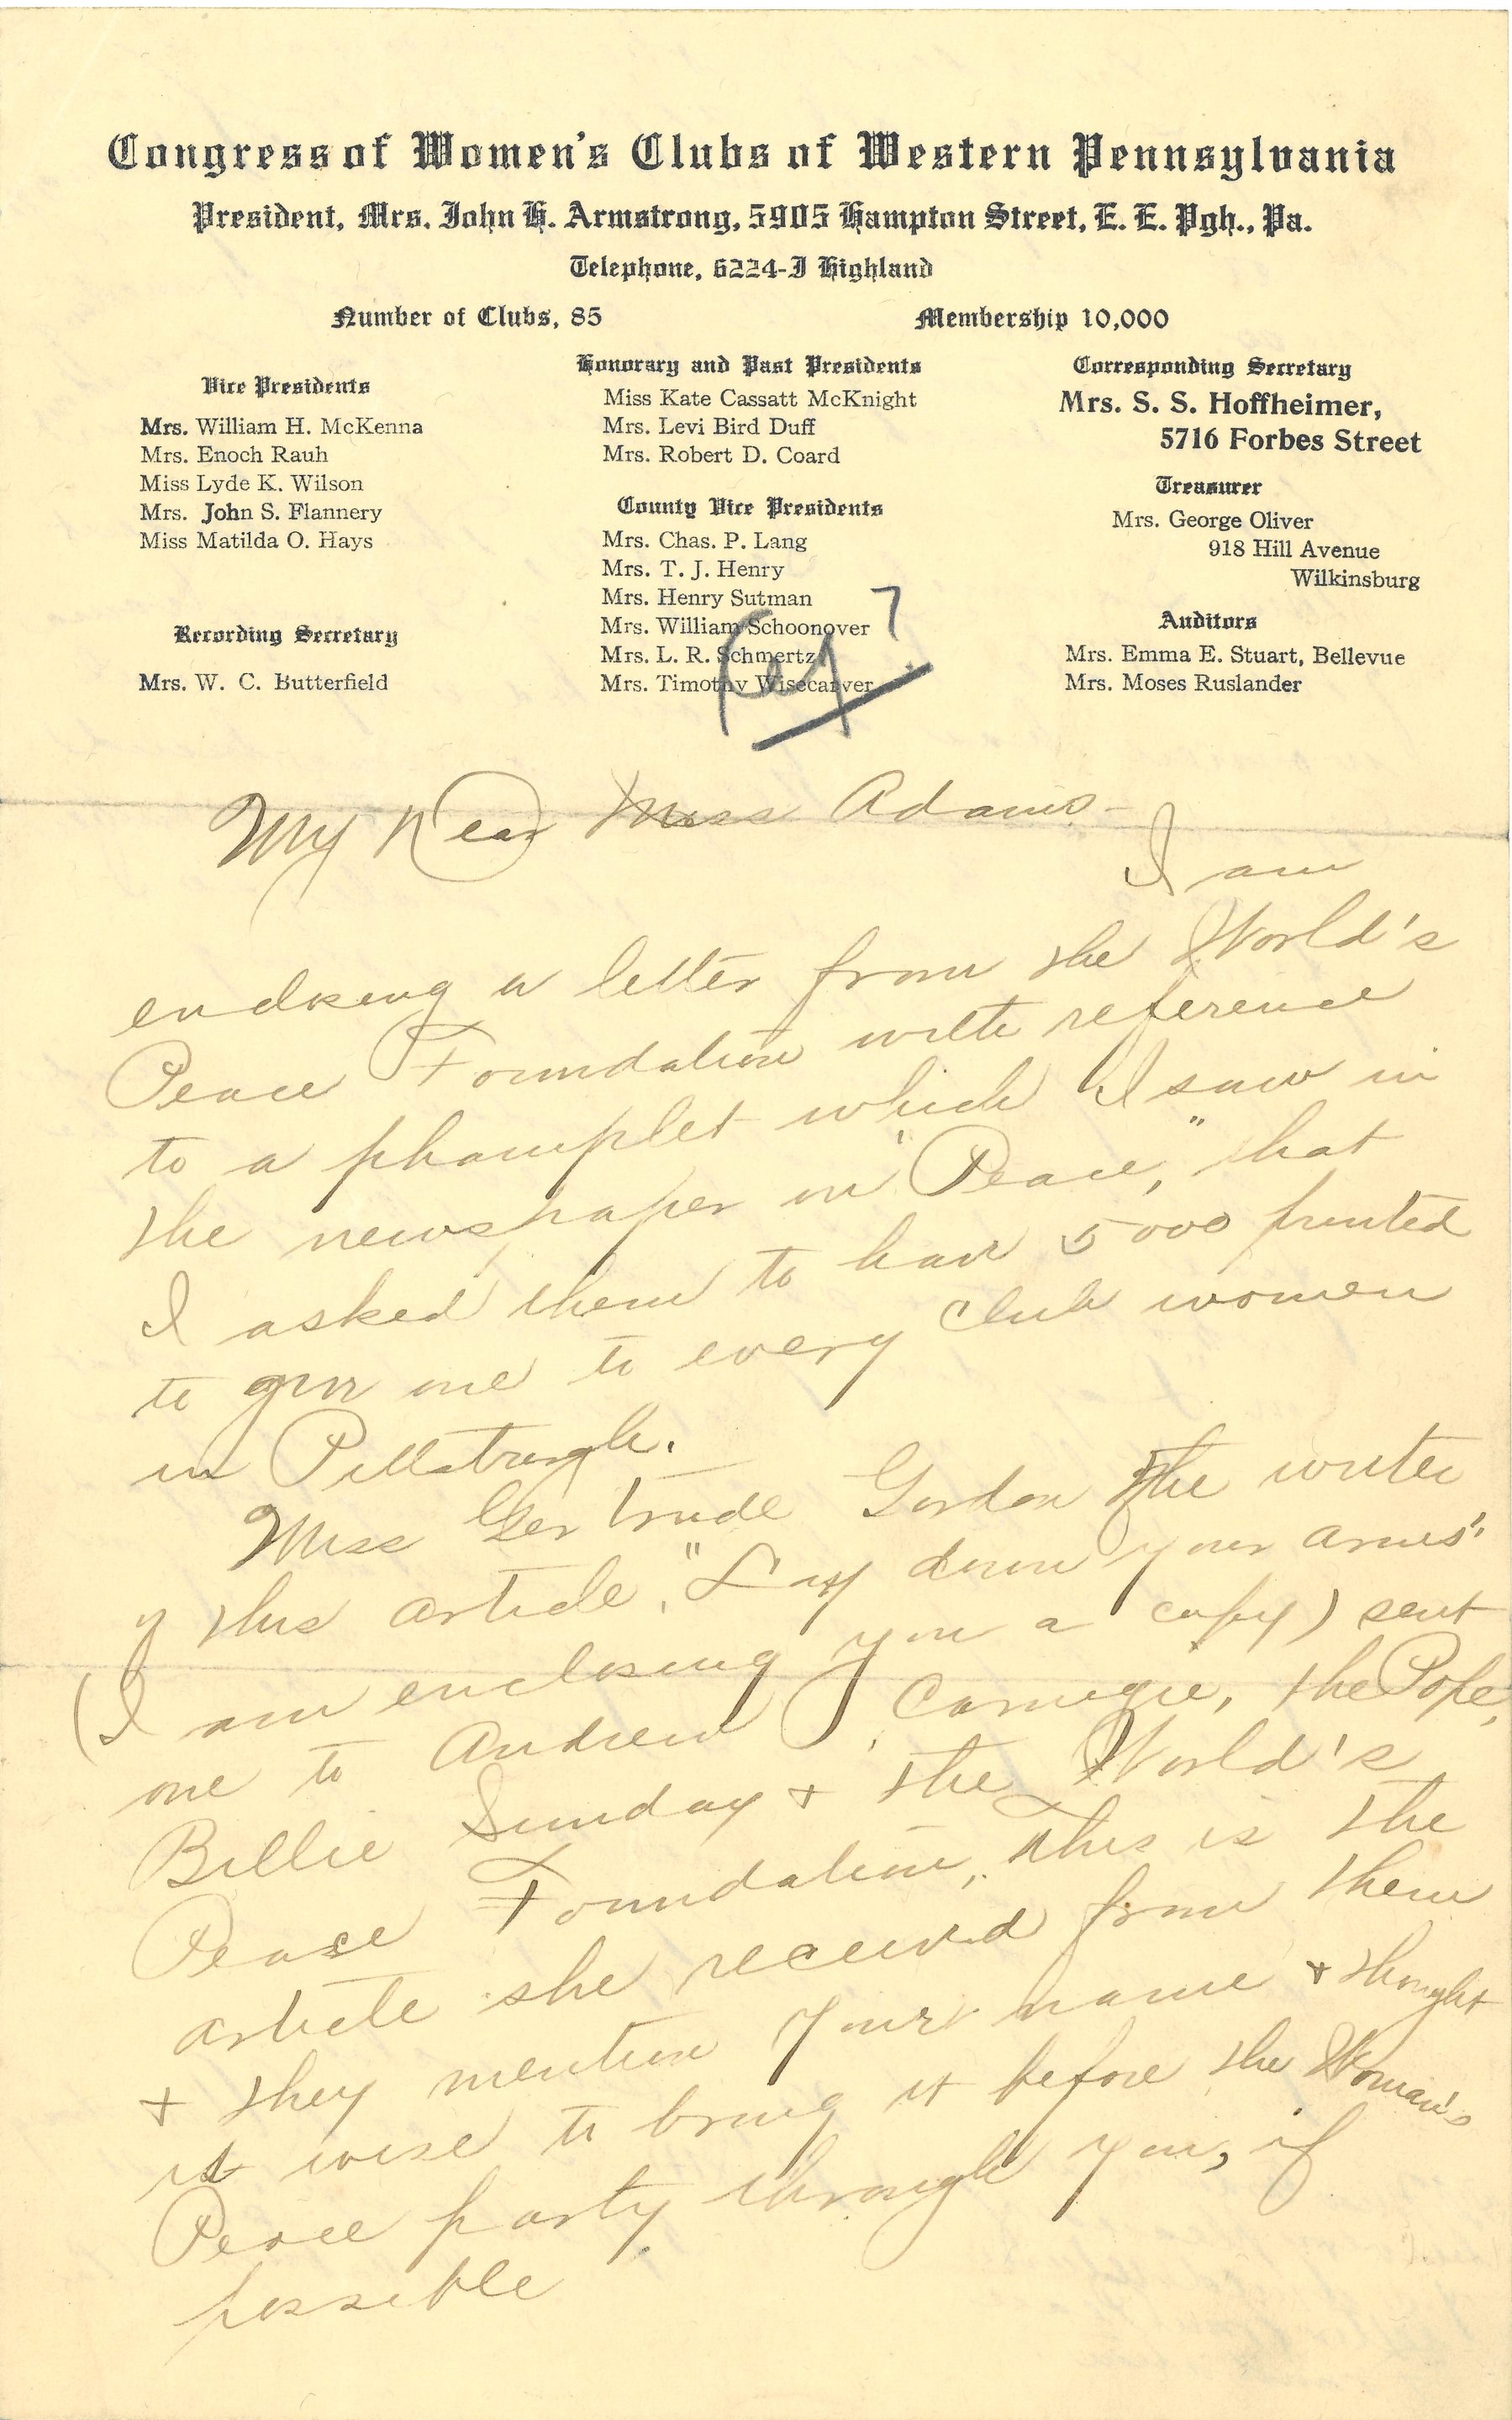 Congress of Women's Clubs of Western Pennsylvania
President, Mrs. John H. Armstrong, 5905 Hampton Street, E. E. Pgh., Pa.
Telephone, 6224-J Highland
Number of Clubs, 85
Membership 10,000
Vice Presidents
Mrs. William H. McKenna
Mrs. Enoch Rauh
Miss Lyde K. Wilson
Mrs. John S. Flannery
Miss Matilda O. Hays
Recording Secretary
Mrs. W. C. Butterfield
Honorary and Past Presidents
Miss Kate Cassatt McKnight
Mrs. Levi Bird Duff
Mrs. Robert D. Coard
County Vice Presidents
Mrs. Chas. P. Lang
Mrs. T. J. Henry
Mrs. Henry Sutman
Mrs. William Schoonover
Mrs. L. R. Schmertz
Mrs. Timothy Wisecarver
Corresponding Secretary
Mrs. S. S. Hoffheimer,
5716 Forbes Street
Treasurer
Mrs. George Oliver
918 Hill Avenue
Wilkinsburg
Auditors
Mrs. Emma E. Stuart, Bellevue
Mrs. Moses Ruslander
My Dear Miss Adams-
I am
enclosing a letter from the World's
Peace Foundation with reference
to a phamplet which I saw in
the newspaper on "Peace," that
I asked them to have 5000 printed
to give one to every club women
in Pittsburgh.
Miss Gertrude Gordon the writer
of this article, "Lay down your arms"
(I am enclosing you a copy) sent
one to Andrew Carnegie, the Pope,
Billie Sunday + the World's
Peace Foundation, this is the
article she received from them
+ they mention your name + thought
it wise to bring it before the Woman's
Peace party through you, if
possible